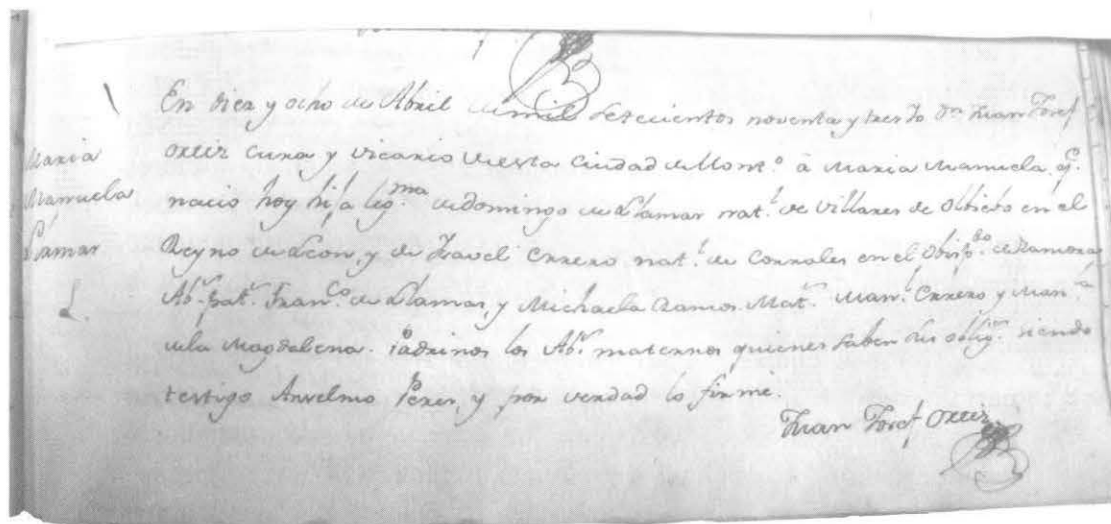 En diez y ocho de Abril de mil setecientos noventa y tres Yo Dn Juan Josef
Ortiz Cura y Vicario de esta Ciudad de Mont.o â Maria Manuela q.e
nacio hoy hija leg.ma de Domingo de Llamas nat.l de Villares de Obiebo en el
Reyno de Leon, y de Isavel Errero nat.l de Corrales en el Obisp.do de Zamora
Ab.s pat.s Fran.co de Llamas, y Michaela Ramos. Mat.s Man.l Errero y Man.a
de la Magdalena. Padrinos los Ab.s maternos quienes saben sus oblig.s siendo
testigo Anselmo Perez, y por verdad lo firme.
Juan Josef Ortiz
Maria
Manuela
Llamas
L.